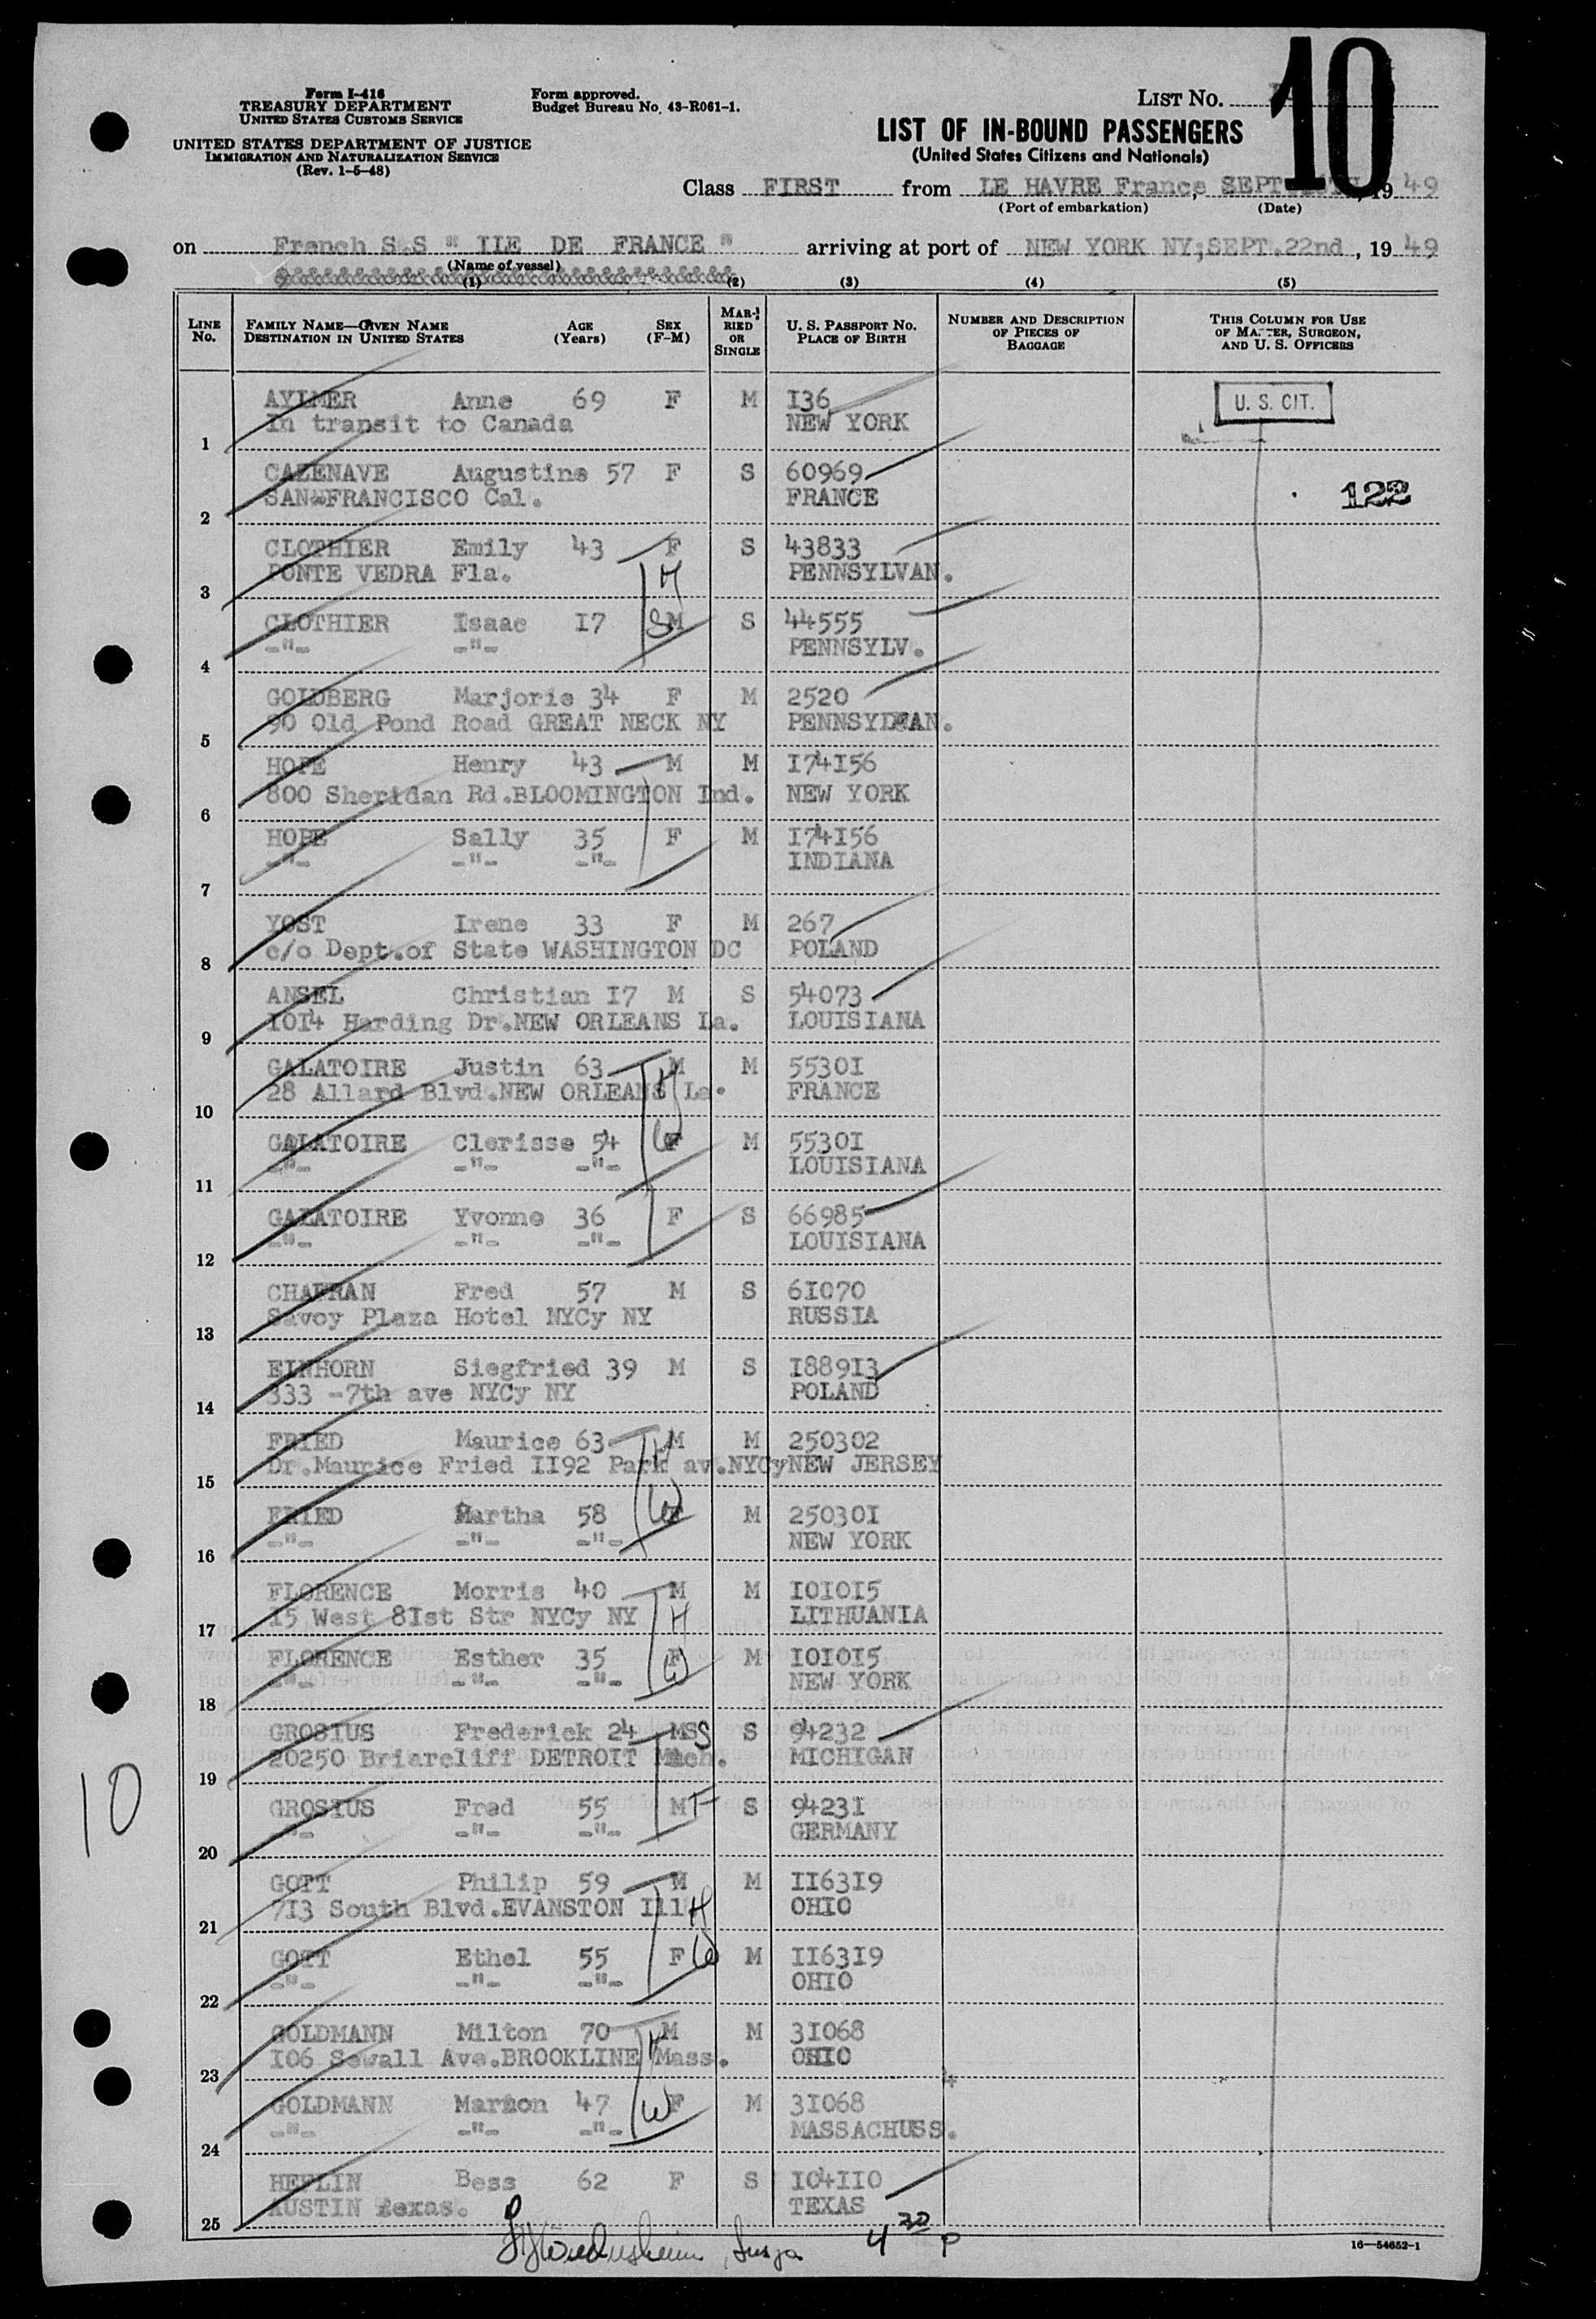 Form I-416
TREASURY DEPARTMENT
UNITED STATES CUSTOMS SERVICE
UNITED STATES DEPARTMENT OF JUSTICE
IMMIGRATION AND NATURALIZATION SERVICE
(Rev. 1-5-48)
Form approved.
Budget Bureau No. 43-R061-1.
LIST NO. 10
LIST OF IN-BOUND PASSENGERS
(United States Citizens and Nationals)
Class FIRST from LE HAVRE France, SEPT , 19 49
(Port of embarkation) (Date)
on French S.S " ILE DE FRANCE " arriving at port of NEW YORK NY;SEPT.22nd , 19 49
(Name of vessel)
(1) (2) (3) (4) (5)
LINE NO. FAMILY NAME—GIVEN NAME DESTINATION IN UNITED STATES AGE (Years) SEX (F-M) MARRIED OR SINGLE U. S. PASSPORT NO. PLACE OF BIRTH NUMBER AND DESCRIPTION OF PIECES OF BAGGAGE THIS COLUMN FOR USE OF MASTER, SURGEON, AND U. S. OFFICERS
AYLMER Anne 69 F M I36 U. S. CIT.
1 In transit to Canada NEW YORK
CAZENAVE Augustine 57 F S 60969 122
2 SAN FRANCISCO Cal. FRANCE
CLOTHIER Emily 43 F S 43833
3 PONTE VEDRA Fla. M PENNSYLVAN.
CLOTHIER Isaac I7 S M S 44555
4 -"- -"- PENNSYLV.
GOLDBERG Marjorie 34 F M 2520
5 90 Old Pond Road GREAT NECK NY PENNSYLVAN.
HOPE Henry 43 M M I74I56
6 800 Sheridan Rd.BLOOMINGTON Ind. NEW YORK
HOPE Sally 35 F M I74I56
7 -"- -"- -"- INDIANA
YOST Irene 33 F M 267
8 c/o Dept.of State WASHINGTON DC POLAND
ANSEL Christian I7 M S 54073
9 I0I4 Harding Dr.NEW ORLEANS La. LOUISIANA
GALATOIRE Justin 63 M M 5530I
10 28 Allard Blvd.NEW ORLEANS La. H FRANCE
GALATOIRE Clerisse 54 W F M 5530I
11 -"- -"- -"- LOUISIANA
GALATOIRE Yvonne 36 F S 66985
12 -"- -"- -"- LOUISIANA
CHAFRAN Fred 57 M S 6I070
13 Savoy Plaza Hotel NYCy NY RUSSIA
EINHORN Siegfried 39 M S I889I3
14 333 -7th ave NYCy NY POLAND
FRIED Maurice 63 H M M 250302
15 Dr.Maurice Fried II92 Park av.NYCy NEW JERSEY
FRIED Martha 58 W F M 25030I
16 -"- -"- -"- NEW YORK
FLORENCE Morris 40 M M I0I0I5
17 I5 West 8Ist Str NYCy NY H LITHUANIA
FLORENCE Esther 35 W F M I0I0I5
18 -"- -"- -"- NEW YORK
GROSIUS Frederick 24 M S S 94232
19 20250 Briarcliff DETROIT Mich. MICHIGAN
GROSIUS Fred 55 M F S 9423I
20 -"- -"- -"- GERMANY
GOTT Philip 59 M M II63I9
21 7I3 South Blvd.EVANSTON Ill H OHIO
GOTT Ethel 55 F W M II63I9
22 -"- -"- -"- OHIO
GOLDMANN Milton 70 M M 3I068
23 I06 Sewall Ave.BROOKLINE H Mass. OHIO
GOLDMANN Marion 47 W F M 3I068
24 -"- -"- -"- MASSACHUSS.
HEFLIN Bess 62 F S I04II0
25 AUSTIN Texas. TEXAS
10
4 30 P
16—54652-1